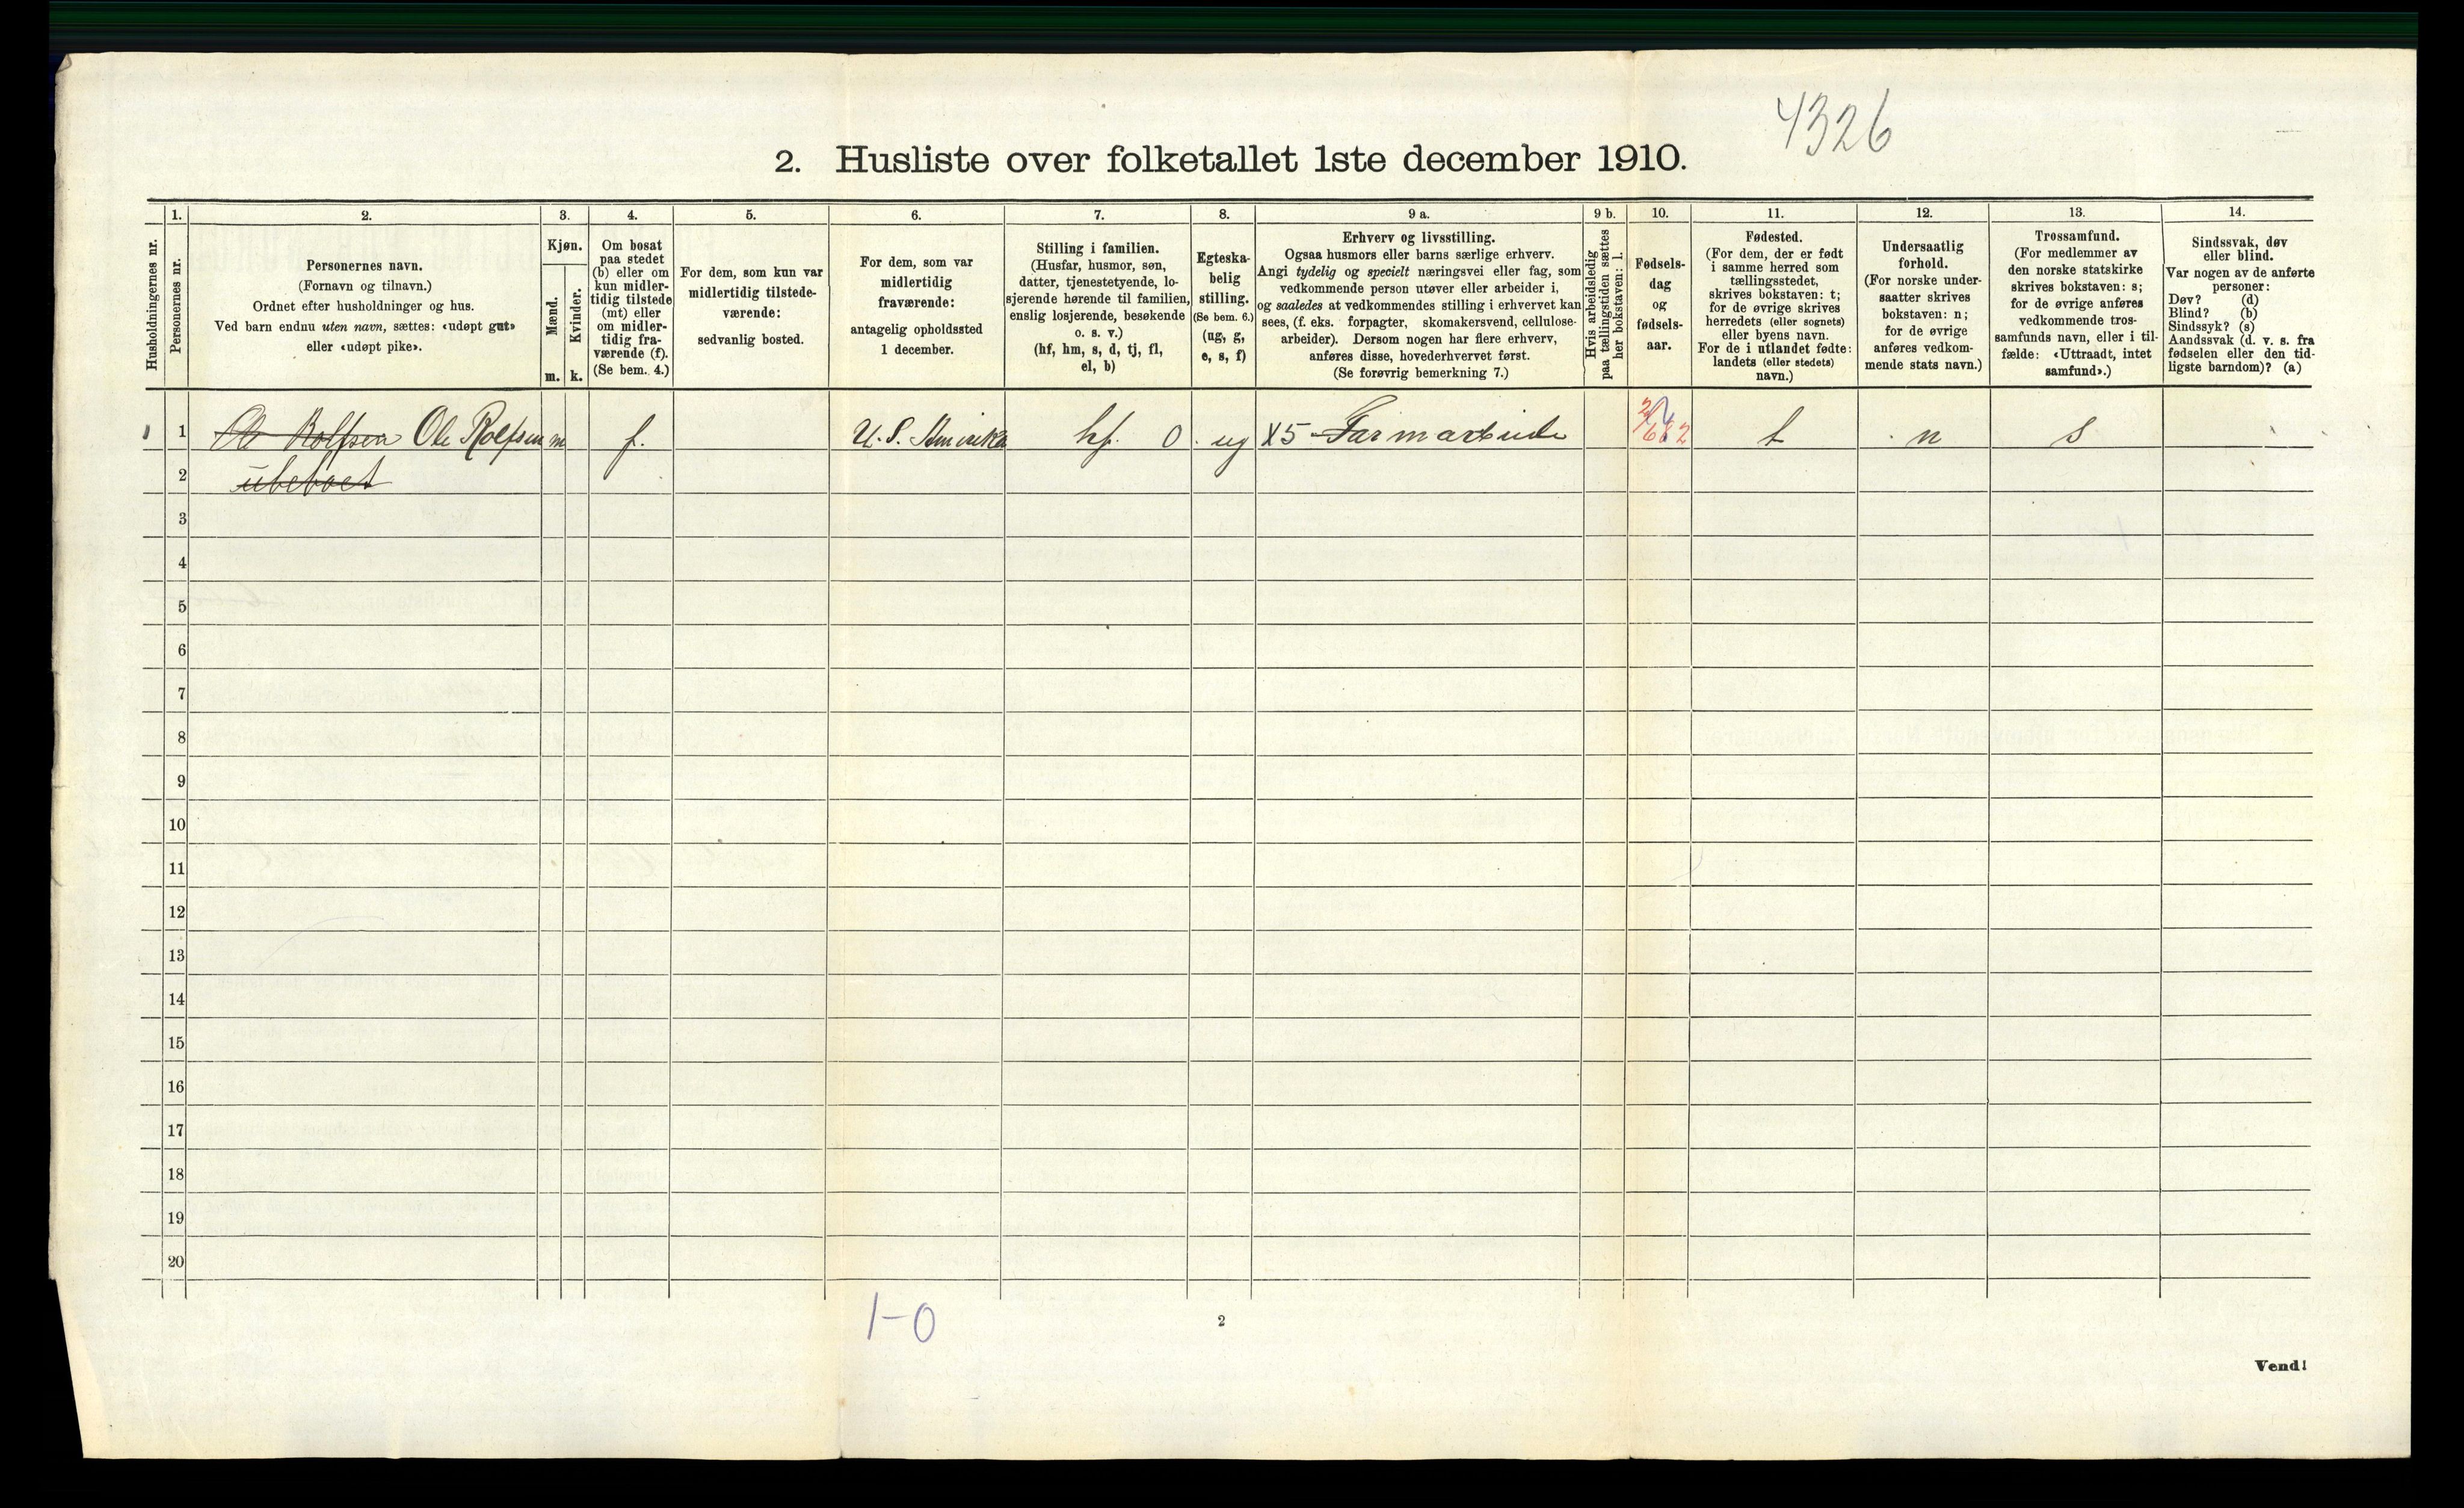 4326
2. Husliste over folketallet 1ste december 1910.
Husholdningernes nr.
1.
Personernes nr.
2.
Personernes navn.
(Fornavn og tilnavn.)
Ordnet efter husholdninger og hus.
Ved barn endnu uten navn, sættes: «udøpt gut»
eller «udøpt pike».
3.
Kjøn.
Mænd.
Kvinder.
m. k.
4.
Om bosat
paa stedet
(b) eller om
kun midler-
tidig tilstede
(mt) eller
om midler-
tidig fra-
værende (f).
(Se bem. 4.)
5.
For dem, som kun var
midlertidig tilstede-
værende:
sedvanlig bosted.
6.
For dem, som var
midlertidig
fraværende:
antagelig opholdssted
1 december.
7.
Stilling i familien.
(Husfar, husmor, søn,
datter, tjenestetyende, lo-
sjerende hørende til familien,
enslig losjerende, besøkende
o. s. v.)
(hf, hm, s, d, tj, fl,
el, b)
8.
Egteska-
belig
stilling.
(Se bem. 6.)
(ug, g,
e, s, f)
9 a.
Erhverv og livsstilling.
Ogsaa husmors eller barns særlige erhverv.
Angi tydelig og specielt næringsvei eller fag, som
vedkommende person utøver eller arbeider i,
og saaledes at vedkommendes stilling i erhvervet kan
sees, (f. eks. forpagter, skomakersvend, cellulose-
arbeider). Dersom nogen har flere erhverv,
anføres disse, hovederhvervet først.
(Se forøvrig bemerkning 7.)
9 b.
Hvis arbeidsledig
paa tællingstiden sættes
her bokstaven: l.
10.
Fødsels-
dag
og
fødsels-
aar.
11.
Fødested.
(For dem, der er født
i samme herred som
tællingsstedet,
skrives bokstaven: t;
for de øvrige skrives
herredets (eller sognets)
eller byens navn.
For de i utlandet fødte:
landets (eller stedets)
navn.)
12.
Undersaatlig
forhold.
(For norske under-
saatter skrives
bokstaven: n;
for de øvrige
anføres vedkom-
mende stats navn.)
13.
Trossamfund.
(For medlemmer av
den norske statskirke
skrives bokstaven: s;
for de øvrige anføres
vedkommende tros-
samfunds navn, eller i til-
fælde: «Uttraadt, intet
samfund».)
14.
Sindssvak, døv
eller blind.
Var nogen av de anførte
personer:
Døv? (d)
Blind? (b)
Sindssyk? (s)
Aandssvak (d. v. s. fra
fødselen eller den tid-
ligste barndom)? (a)
1 Ole Rolfsen Ole Rolfsen m f. U. S. Amerika hf. 0 ug X5 Farmarbeide t n s
2 ubeboet
3
4
5
6
7
8
9
10
11
12
13
14
15
16
17
18
19
20
1-0
2
Vend!